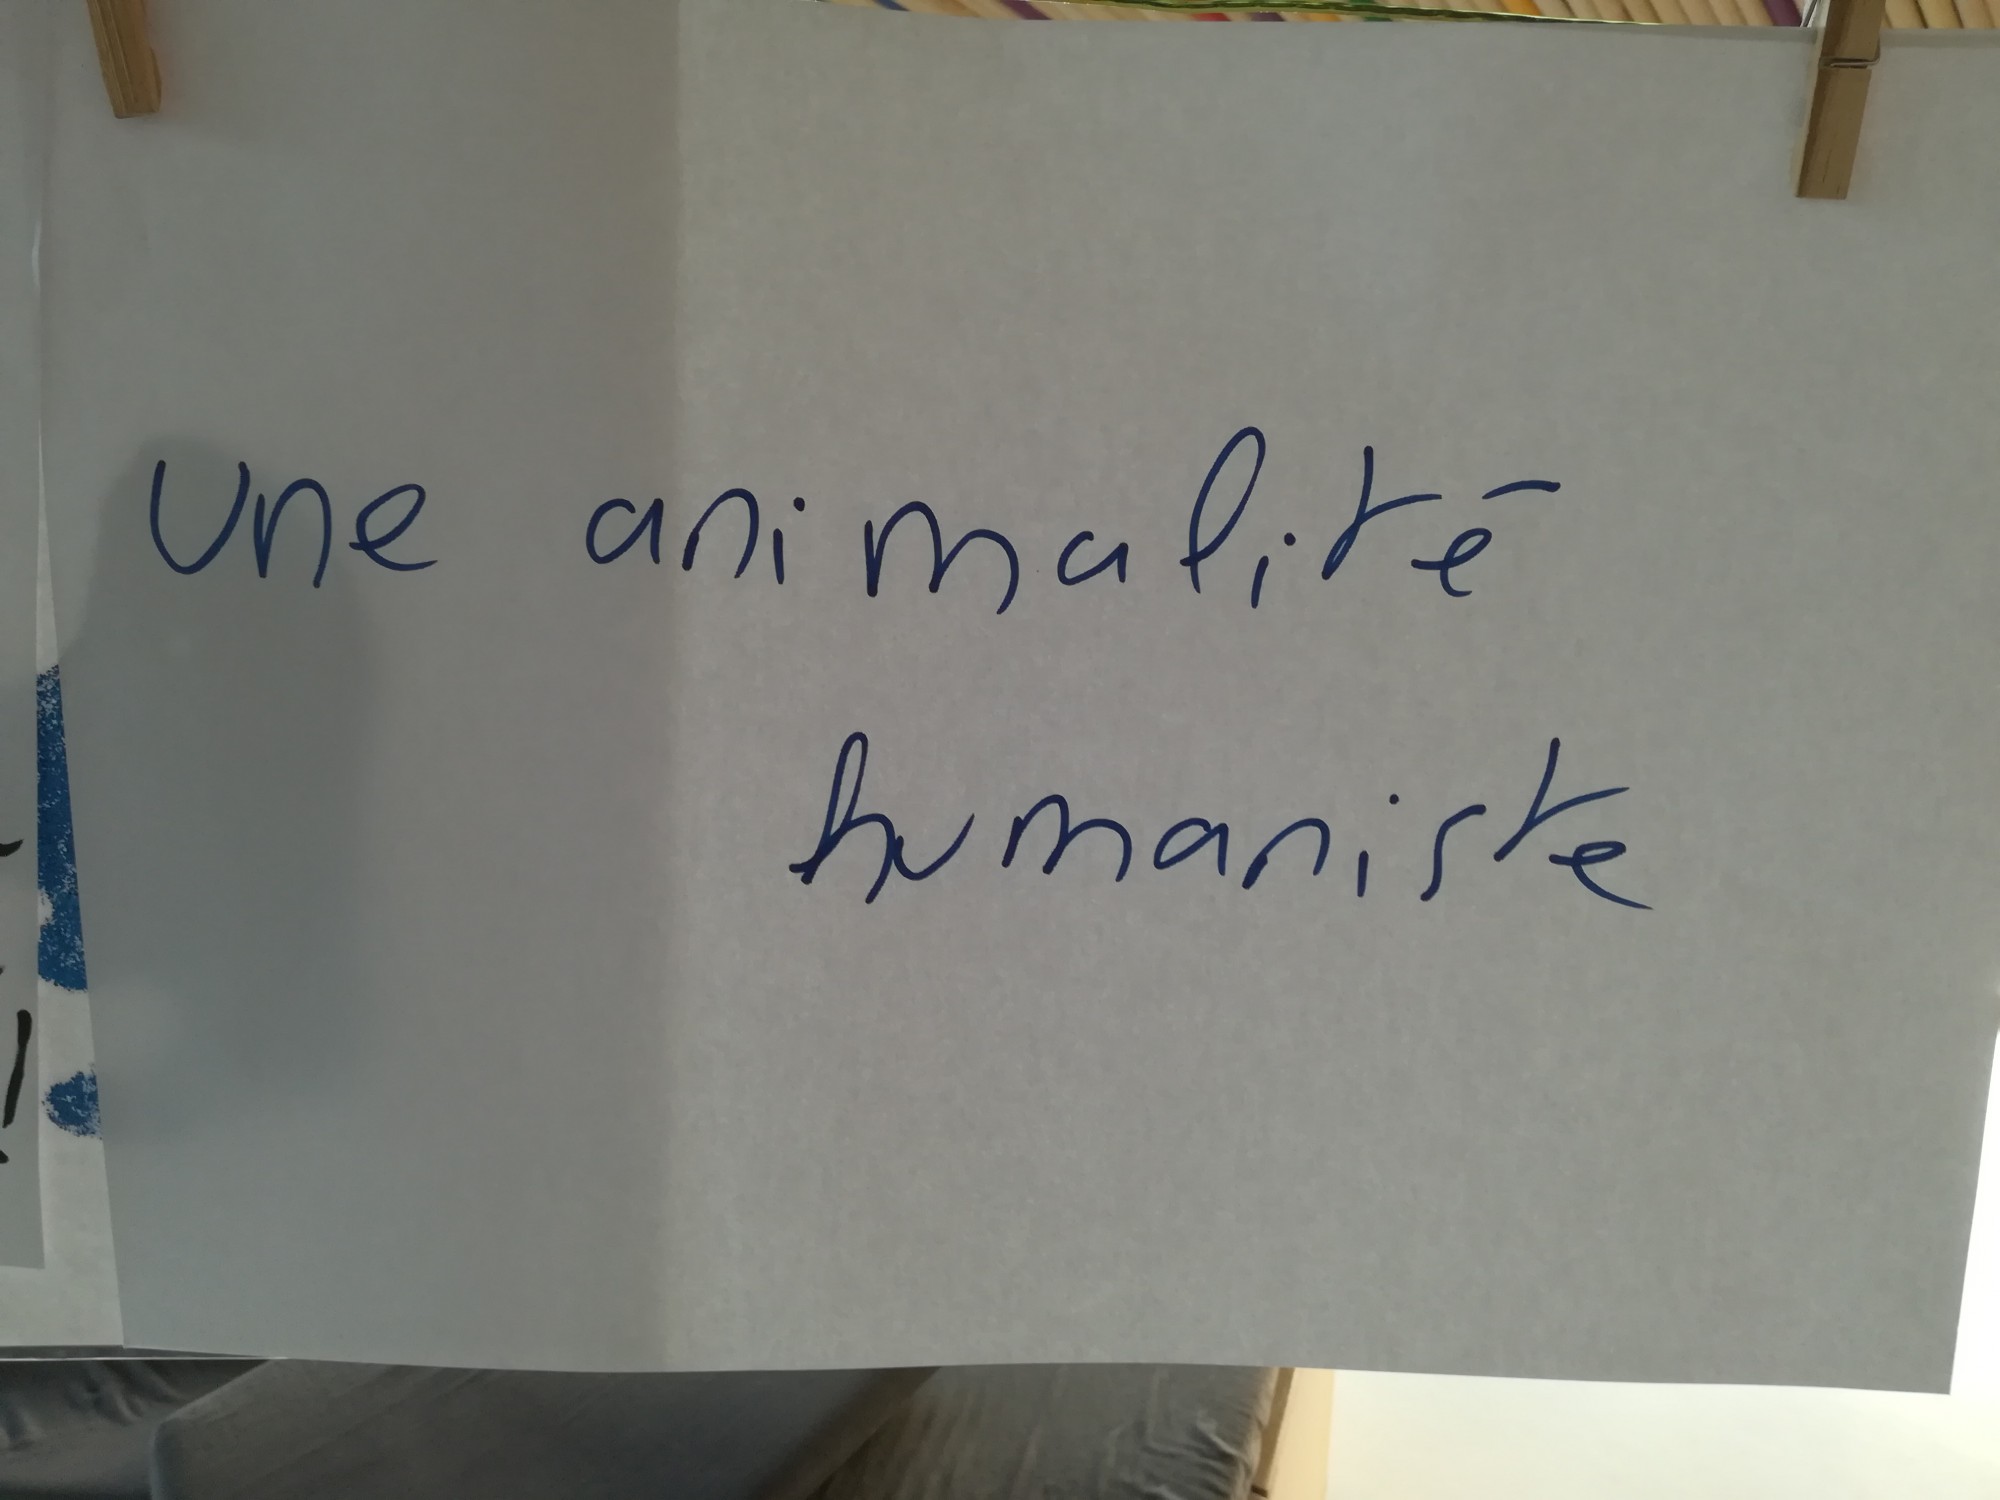 Une animalité
humaniste